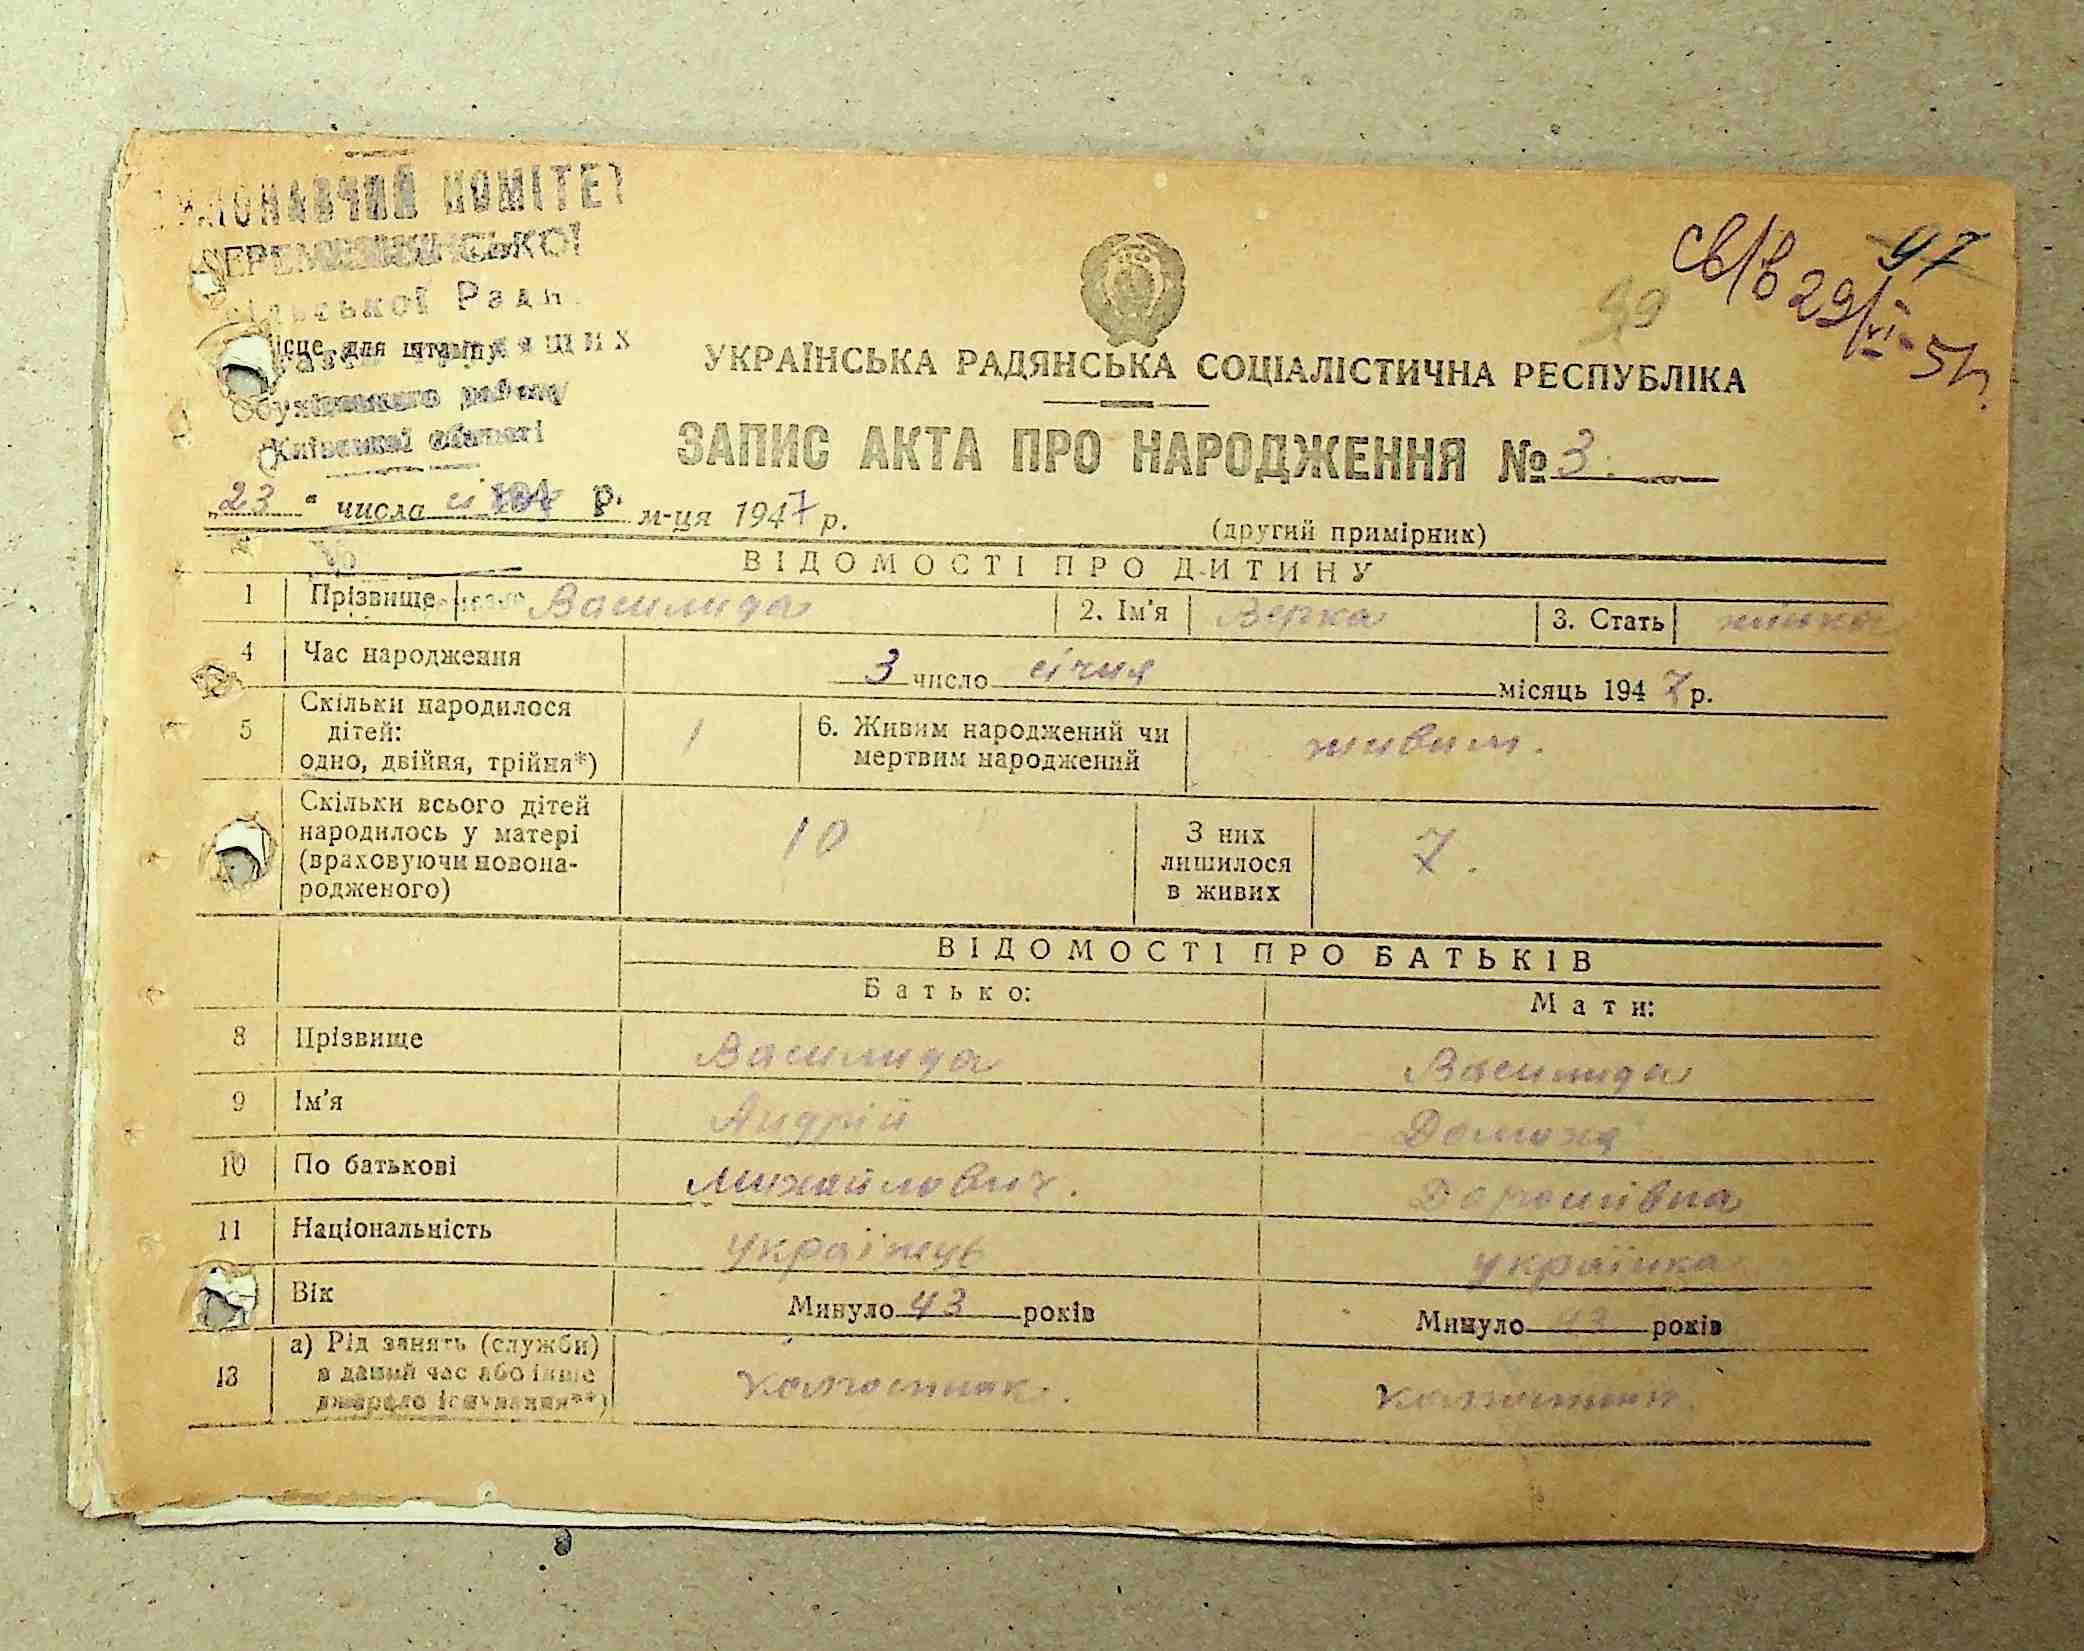 КОМІТЕТ
сільської Ради
Місце для штампу
Обухівського району
Київської області
97
99
св/в 29/VI-51
УКРАЇНСЬКА РАДЯНСЬКА СОЦІАЛІСТИЧНА РЕСПУБЛІКА
ЗАПИС АКТА ПРО НАРОДЖЕННЯ № 3.
„23“ числа січ м-ця 1947 р.
(другий примірник)
ВІДОМОСТІ ПРО ДИТИНУ
1 Прізвище Василида 2. Ім'я Верка 3. Стать жінка
4 Час народження 3 число січня місяць 1947 р.
5 Скільки народилося дітей: одно, двійня, трійня*) 1 6. Живим народжений чи мертвим народжений живим.
Скільки всього дітей народилось у матері (враховуючи новонародженого) 10 З них лишилося в живих 7.
ВІДОМОСТІ ПРО БАТЬКІВ
Батько: Мати:
8 Прізвище Василида Василида
9 Ім'я Андрій Домаха
10 По батькові Михайлович. Дорошівна
11 Національність українець українка
Вік Минуло 43 років Минуло 43 років
13 а) Рід занять (служби) в даний час або інше джерело існування**) колгоспник.